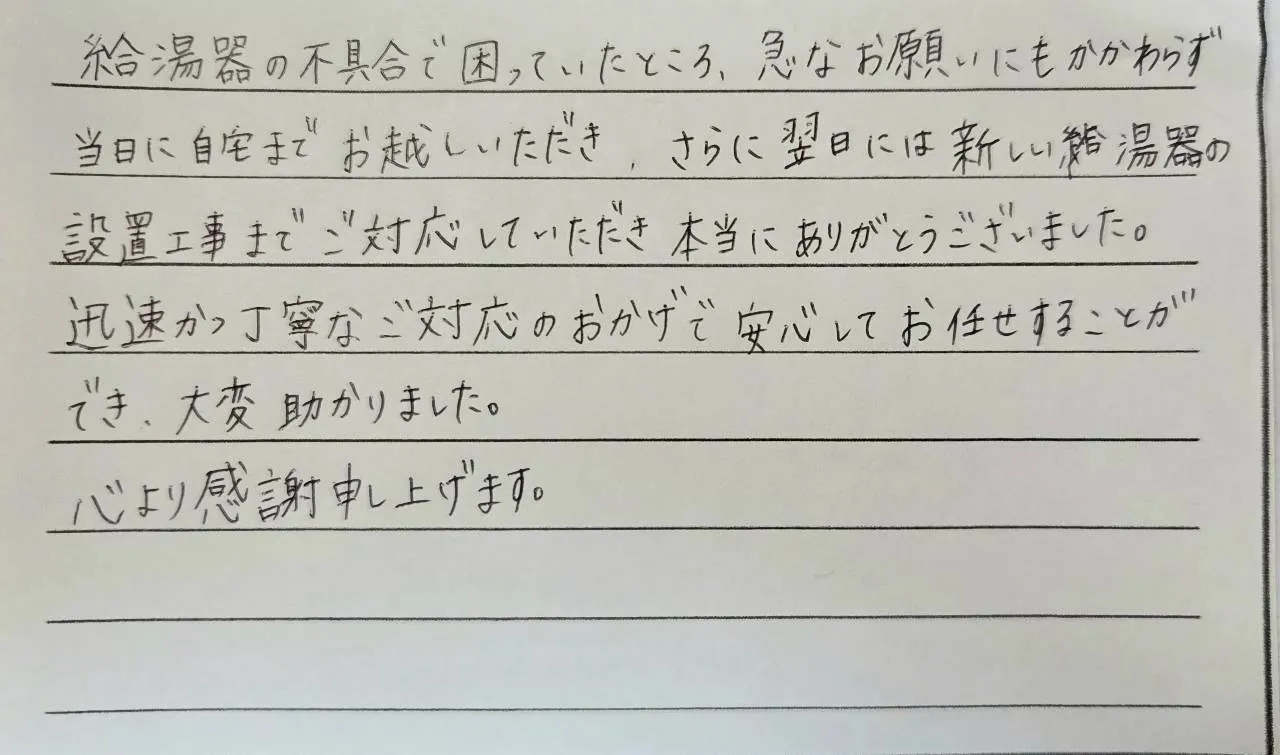 給湯器の不具合で困っていたところ、急なお願いにもかかわらず
当日に自宅までお越しいただき、さらに翌日には新しい給湯器の
設置工事までご対応していただき本当にありがとうございました。
迅速かつ丁寧なご対応のおかげで安心してお任せすることが
でき、大変助かりました。
心より感謝申し上げます。